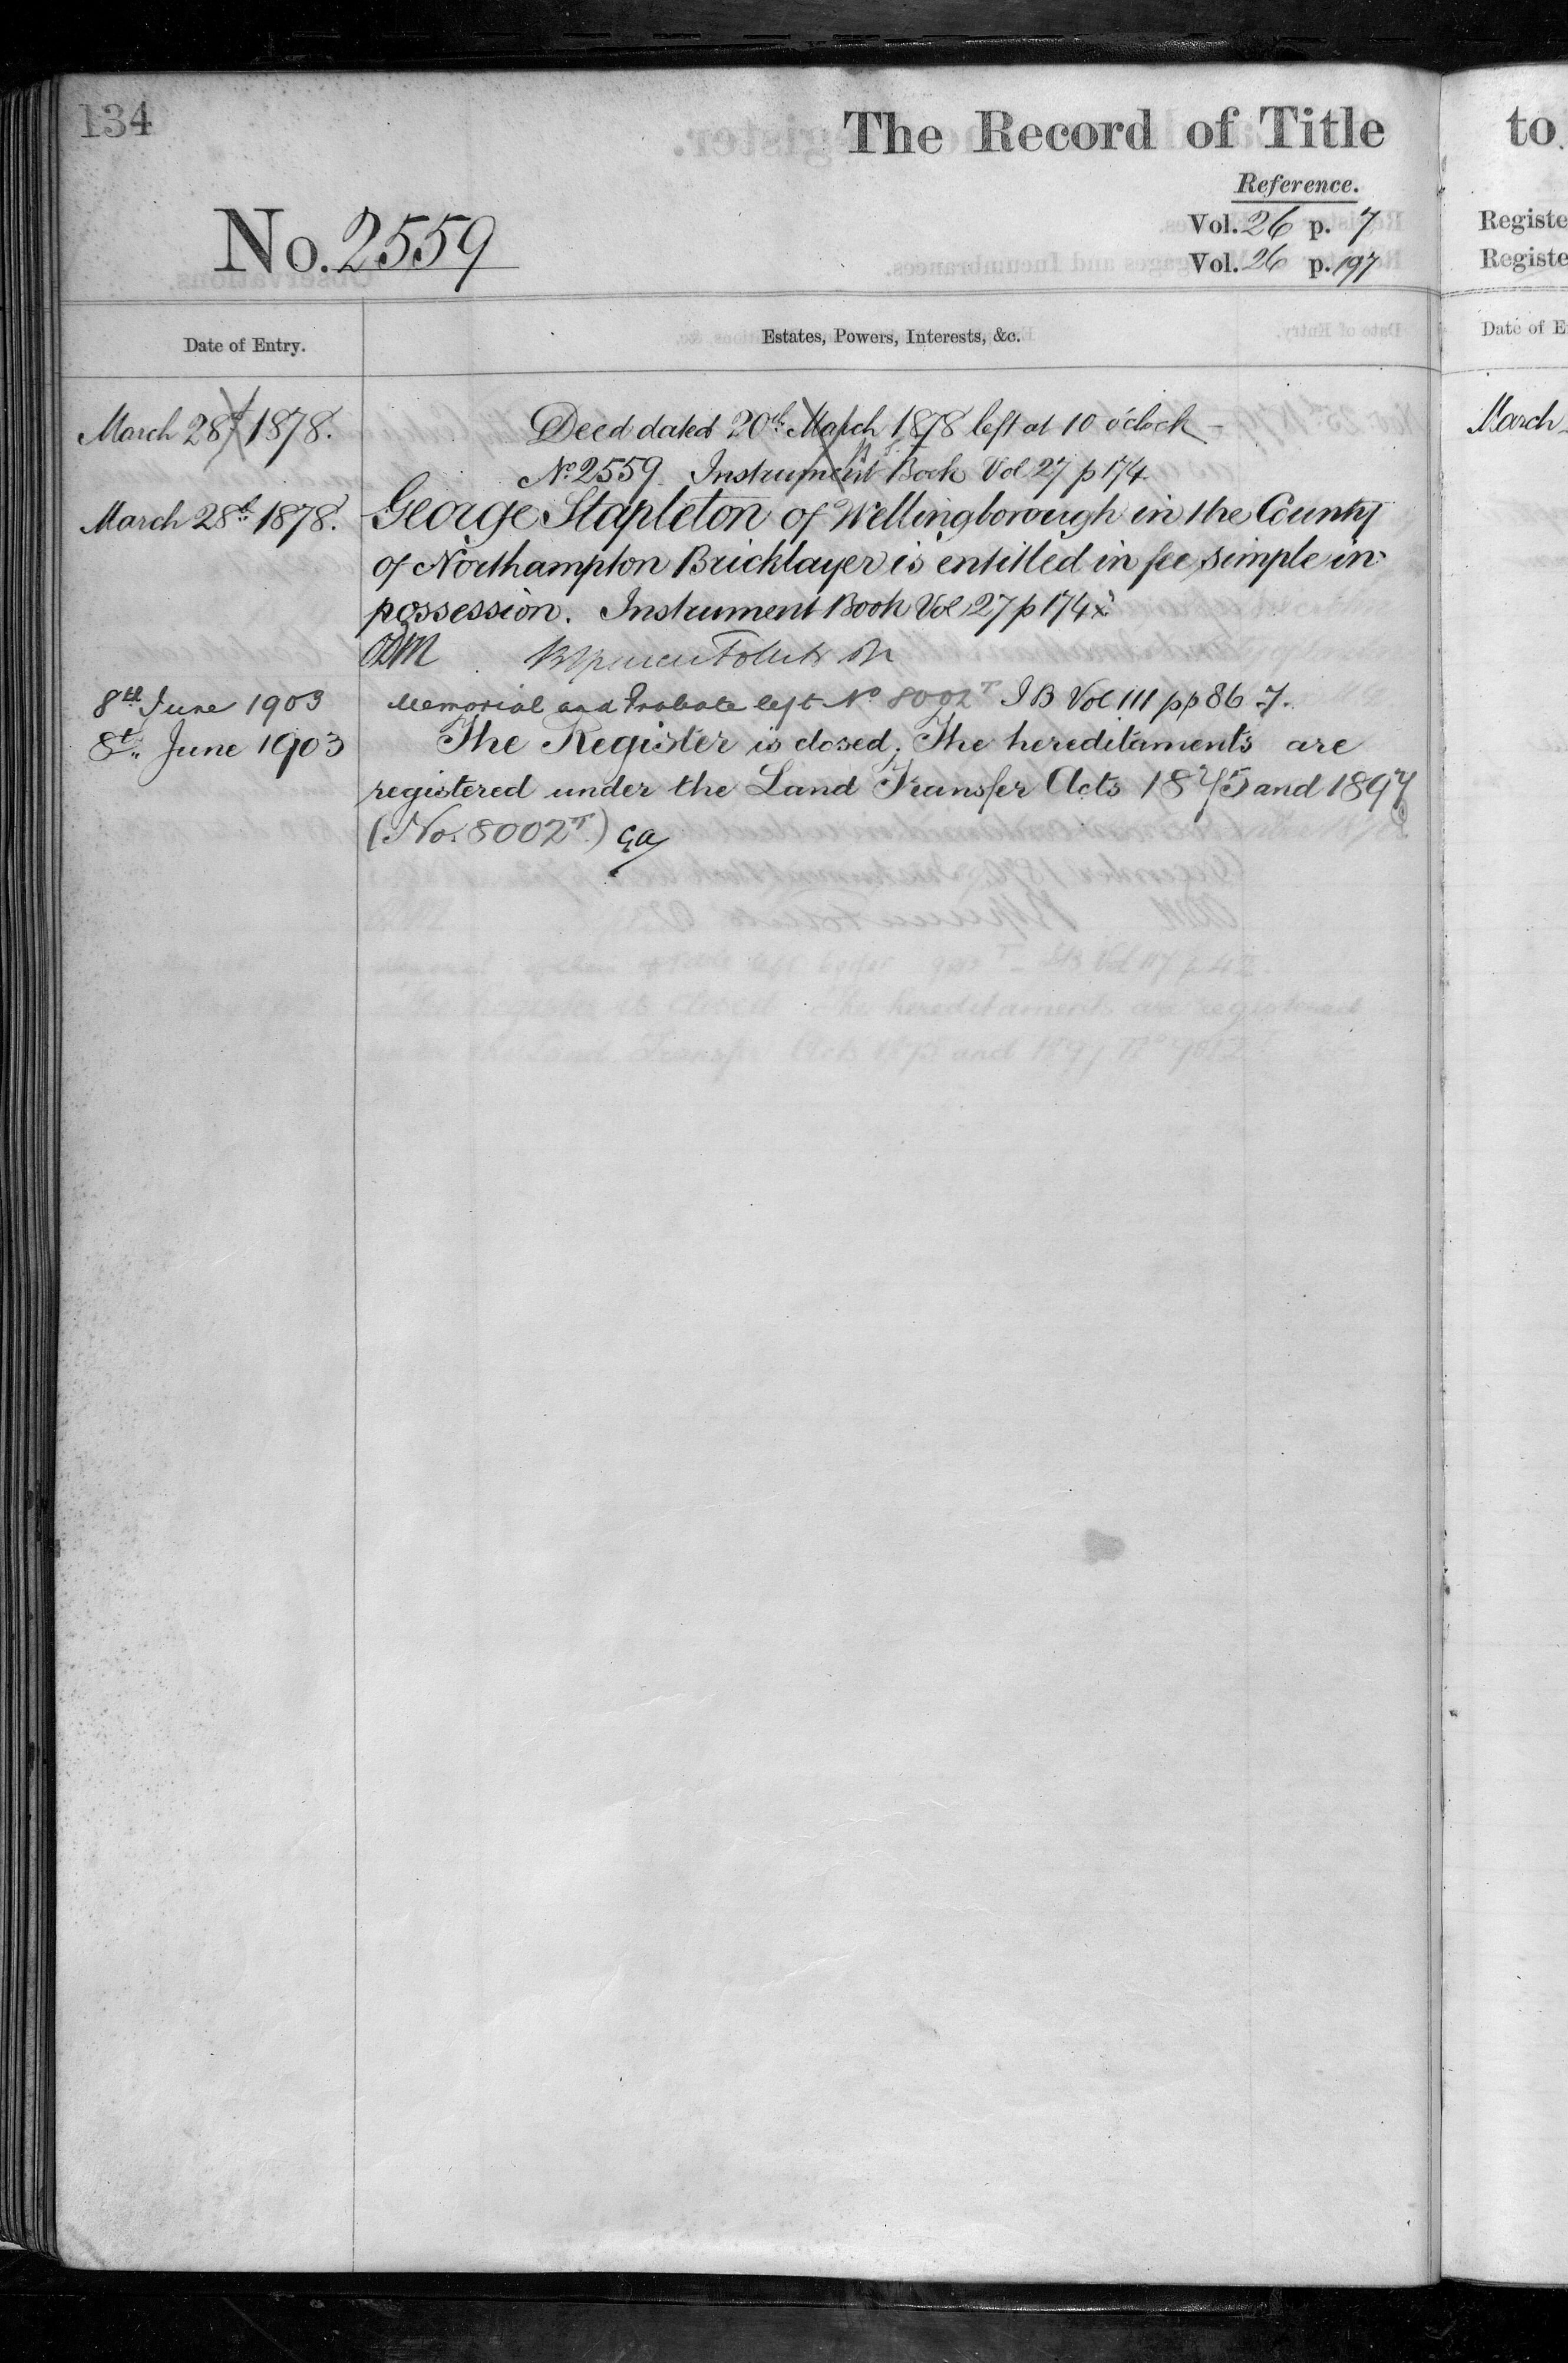 134
The Record of Title
Reference.
No. 2559
Vol. 26 p. 7
Vol. 26 p. 197
Date of Entry.
Estates, Powers, Interests, &c.
March 28t 1878.
Deed dated 20th March 1878 left at 10 o'clock -
No 2559. Instrument Book Vol 27 p 174
March 28t 1878.
George Stapleton of Wellingborough in the County
of Northampton Bricklayer is entitled in fee simple in
possession. Instrument Book Vol 27 p 174
8th June 1903
Memorial and Probate left No 8002T I B Vol 111 pp 86-7.
8t June 1903
The Register is closed. The hereditaments are
registered under the Land Transfer Acts 1875 and 1897
(No. 8002T)
to
Registe
Registe
Date of E
March